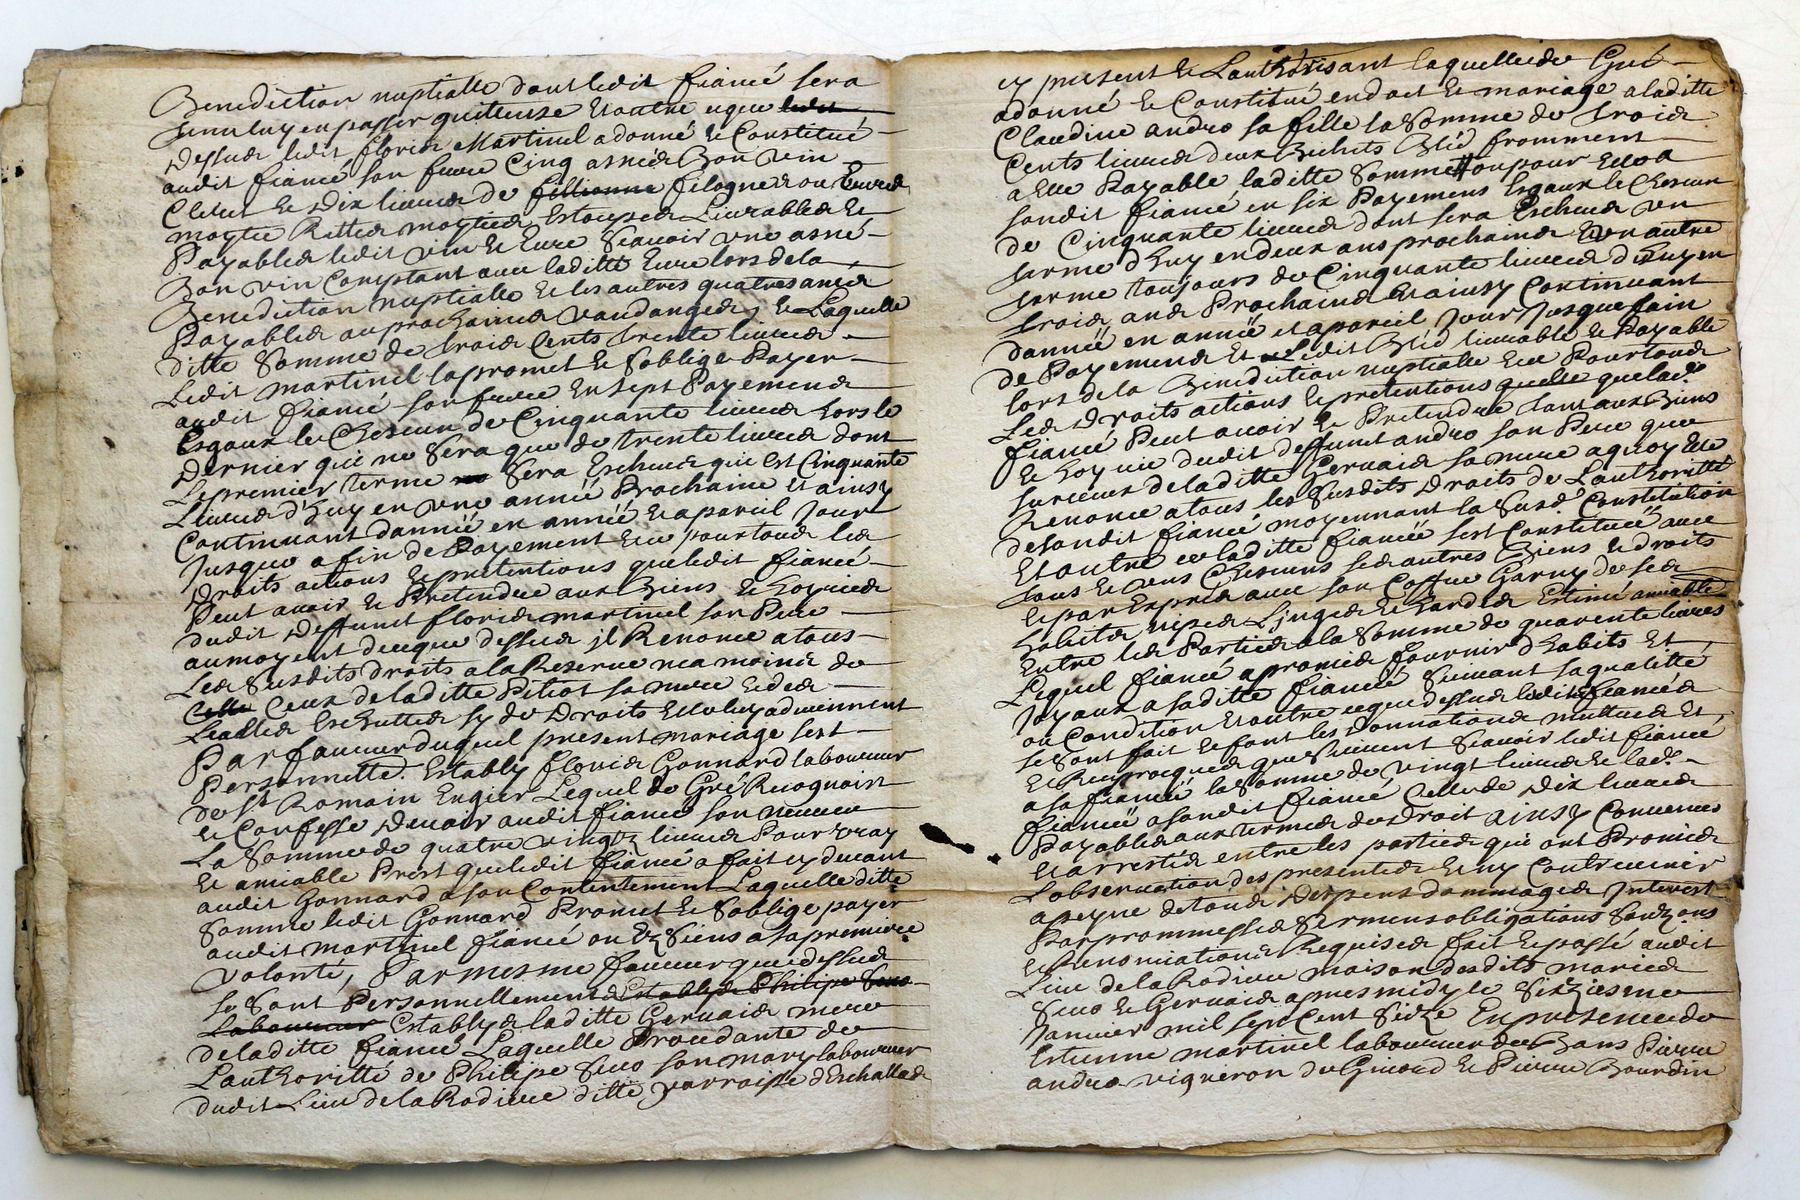 Benediction nuptialle dont ledit fiancé sera
tenu luy en passer quittense Et outre ceque ledit
dessus ledit floris Martinel a donné et Constitué
audit fiancé son frere Cinq asnées Bon vin
Cleret et Dix livres de fillionne filogne ou Euvre
moytie Rittes moytiés Estoupes Livrables et
Payables ledit vin et Euvre scavoir une asné
Bon vin Comptant avec laditte Euvre lors de la
Benediction nuptialle et les autres quatres asnés
Payables au prochaines vandanges, et Laquelle
ditte Somme de trois Cents trente livres
Ledit martinel la promet et soblige Payer
audit fiancé son frere En sept Payemens
Esgaux le Chescun de Cinquante livres hors le
Dernier qui ne sera que de trente livres dont
Le premier terme sera Escheus qui est Cinquante
Livres d'huy en une année Prochaine Et ainsy
Continuant dannée en année et apareil Jour
Jusque a fin de Payement et ce pour tous les
droits actions et pretentions que ledit fiancé
Peut avoir et Pretendre aux Biens et hoyries
dudit deffunt floris martinel son Pere
au moyent de ceque dessus jl Renonce a tous
Les susdits droits a la Reserve neamoins de
Celle Ceux de laditte Pitiot sa mere et des
Leales Escheuttes sy de Droits Elle luy adviennent
Par faveur duquel present mariage sest
Personnelle. Estably floris Gonnard laboureur
de St Romain Engier Lequel de Gré Recognoist
et Confesse devoir audit fiancé son neveu
La Somme de quatre vingtz livres Pour vray
et amiable Prest que ledit fiancé a fait cy devant
audit Gonnard a son Contentement Laquelle ditte
Somme ledit Gonnard Promet et soblige payer
audit martinel fiancé ou Ez siens a sa premiere
volonté, Par mesme faveur que dessus
se sont Personnellement Establys Philipe Seno
Laboureur Establys laditte Gervais mere
de laditte fiancé Laquelle Procedante de
Lauthoritté de Philipe Seno son mary laboureur
dudit Lieu de la Rodiere ditte parroisse dEschallas
cy present et Lauthorisant laquelle de Gré
a donné et Constitué en dot et mariage a laditte
Claudine andro sa fille la Somme de trois
Cents livres deux Bichets Blé fromment
a Elle Payable laditte Somme ou pour Elle a
sondit fiancé en six Payemens Esgaux le Chescun
de Cinquante livres dont sera Escheus un
terme d'huy en deux ans prochains Et un autre
terme toujours de Cinquante livres d'huy en
trois ans Prochains Et ainsy Continuant
dannée en année et apareil Jour Jusque fain
de Payemens Et Ledit Blé livrable et Payable
lors de la Benediction nuptialle Et ce Pour tous
Les droits actions et pretentions quelle que lad.
fiancé Peut avoir et Pretendre tant aux Biens
et hoyrie dudit deffunt andro son Pere que
sur ceux de laditte Gervais sa mere a quoy Elle
Renonce a tous les susdits droits de Lauthoritté
de sondit fiancé moyennant la susd. Constitution
Et outre ce laditte fiancée sest Constituée avec
tous et uns Chescuns ses autres Biens et droits
et par Exprés avec son Coffre Garny de ses
habits nipes Linges et hardes Estimé amiable
Entre les Parties a la Somme de quarente livres
Lequel fiancé a promis fournir d'habits Et
Joyaux a saditte fiancée suivant sa qualitté
ou Condition Et outre ceque dessus lesdits fiancés
se sont fait et font les donnations mutuels Et
et Reciproques que suivent scavoir ledit fiancé
a sa fiancée la Somme de vingt livres et lad.
fiancée a sondit fiancé Celle de Dix livres
Payables aux termes de droit ainsy Convenus
et arrestés entre les parties qui ont Promis
Lobservation des presentes et ny Contrevenir
a peyne de tous despens dommages Interest
Par prommesses sermens obligations soubzons
et Renonciations Requises fait et passé audit
Lieu de la Rodiere maison desdits mariés
Seno et Gervais apres midy le Sixiesme
Janvier mil sept Cent Seize En presence de
Estienne martinel laboureur de Bans Pierre
andro vigneron de Givord et Pierre Bourdin